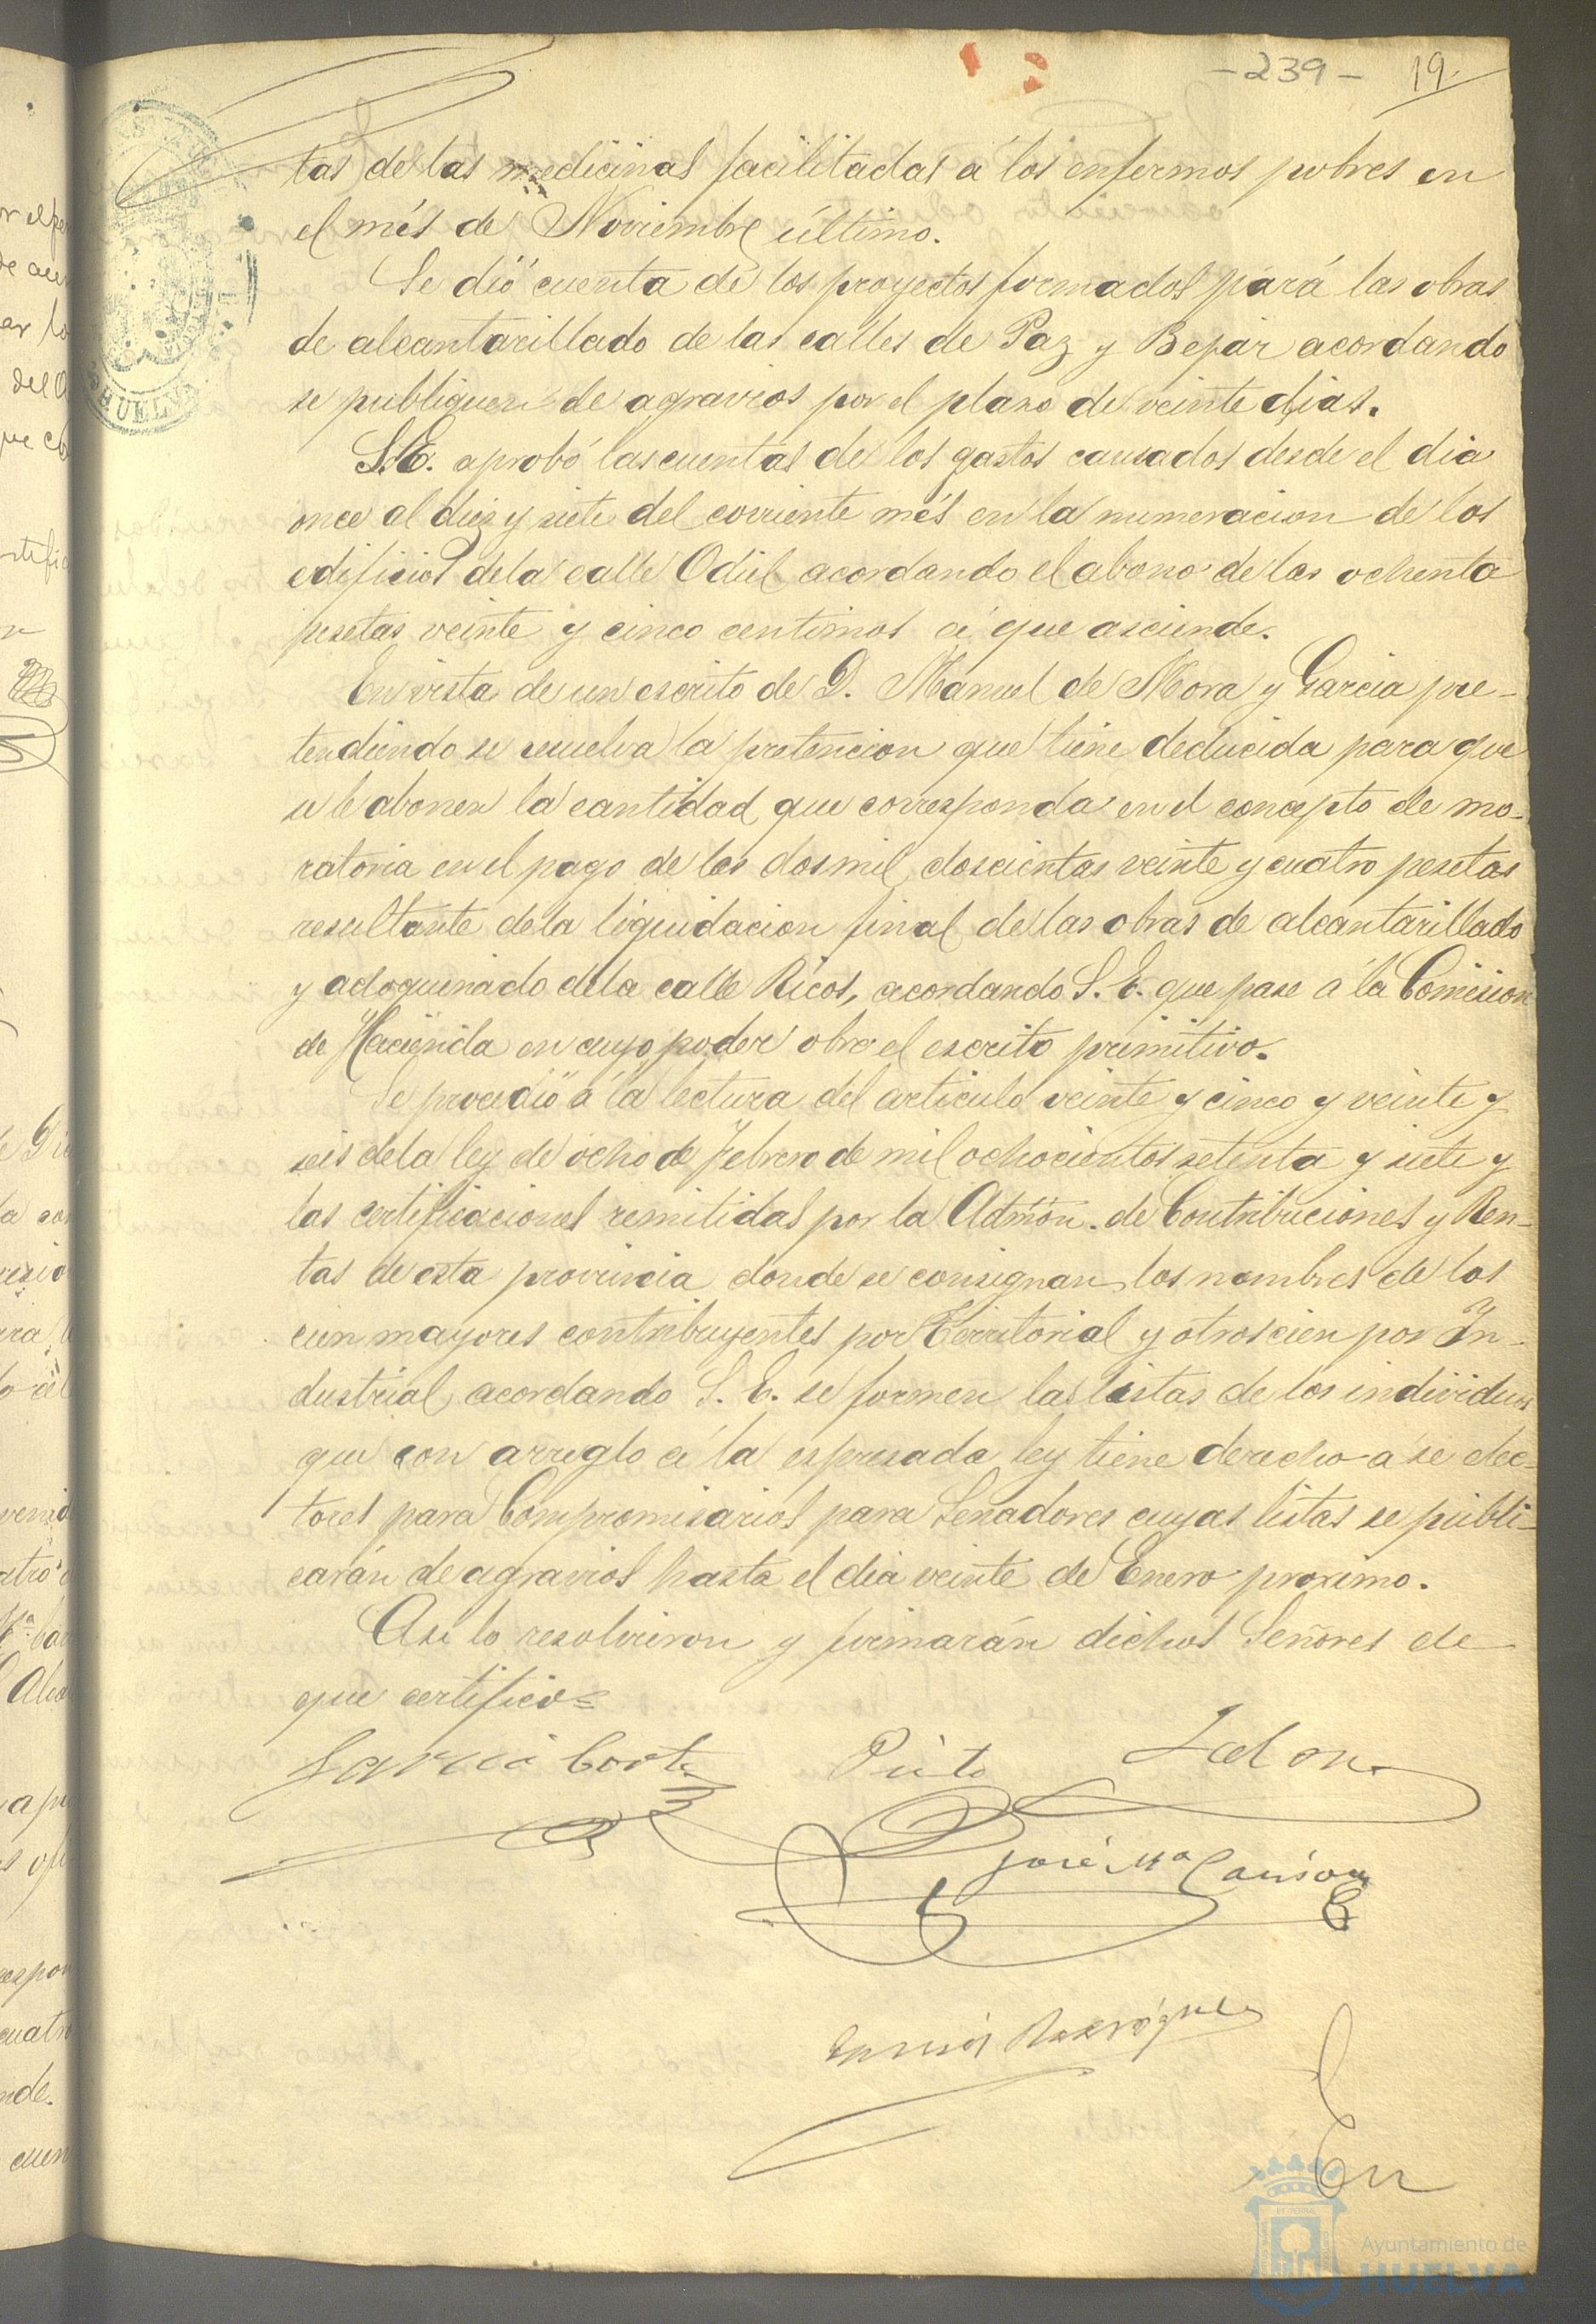 -239- 19.
tas de las medicinas facilitadas á los enfermos pobres en
el més de Noviembre último.
Se dió cuenta de los proyectos formados pará las obras
de alcantarillado de las calles de Paz y Bejar acordando
se publiquen de agravios por el plazo de veinte dias.
S.E. aprobó las cuentas de los gastos causados desde el dia
once al diez y siete del corriente més en la numeracion de los
edificios de la calle Odiel acordando el abono de las ochenta
pesetas veinte y cinco centimos á que asciende.
En vista de un escrito de D. Manuel de Mora y Garcia pre-
tendiendo se resuelva la pretencion que tiene deducida para que
se le abonen la cantidad que corresponda en el concepto de mo-
ratoria en el pago de las dos mil doscientas veinte y cuatro pesetas
resultante de la liquidacion final de las obras de alcantarillado
y adoquinado de la calle Ricos, acordando S. E. que pase á la Comision
de Hacienda en cuyo poder obra el escrito primitivo.
Se procedió á la lectura del articulo veinte y cinco y veinte y
seis de la ley de ocho de Febrero de mil ochocientos setenta y siete y
las certificaciones remitidas por la Admón. de Contribuciones y Ren-
tas de esta provincia donde se consignan los nombres de los
cien mayores contribuyentes por Territorial y otros cien por In-
dustrial acordando S. E. se formen las listas de los individuos
que con arreglo á la espresada ley tiene derecho a se elec-
tores para Compromisarios para Senadores cuyas listas se publi-
carán de agravios hasta el dia veinte de Enero proximo.
Asi lo resolvieron y firmarán dichos Señores de
que certifico=
Garcia Cortes Pinto Jalon
José Mª
Rodriguez
En
HUELVA
Ayuntamiento de
HUELVA